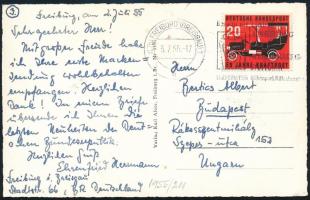 ③
Freiburg, am 2. Juli 55
Sehr geehrter Herr!
Mit großer Freude habe
ich Ihre erste Marken-
sendung wohlbehalten
empfangen. Herzlichen
Dank! In einem Briefe
übersende ich Ihnen die
letzten Neuheiten der Deut-
schen Bundesrepublik.
Herzlichen Gruß
Ehrenfried Herrmann
Freiburg i. Breisgau
Stadtstr. BR Deutschland
1955/211
FREIBURG (BREISGAU)
DEUTSCHE BUNDESPOST
20
25 JAHRE KRAFTPOST
Herrn
Bertics Albert
Budapest
Rákosszentmihály
Szepes-utca 153
Ungarn